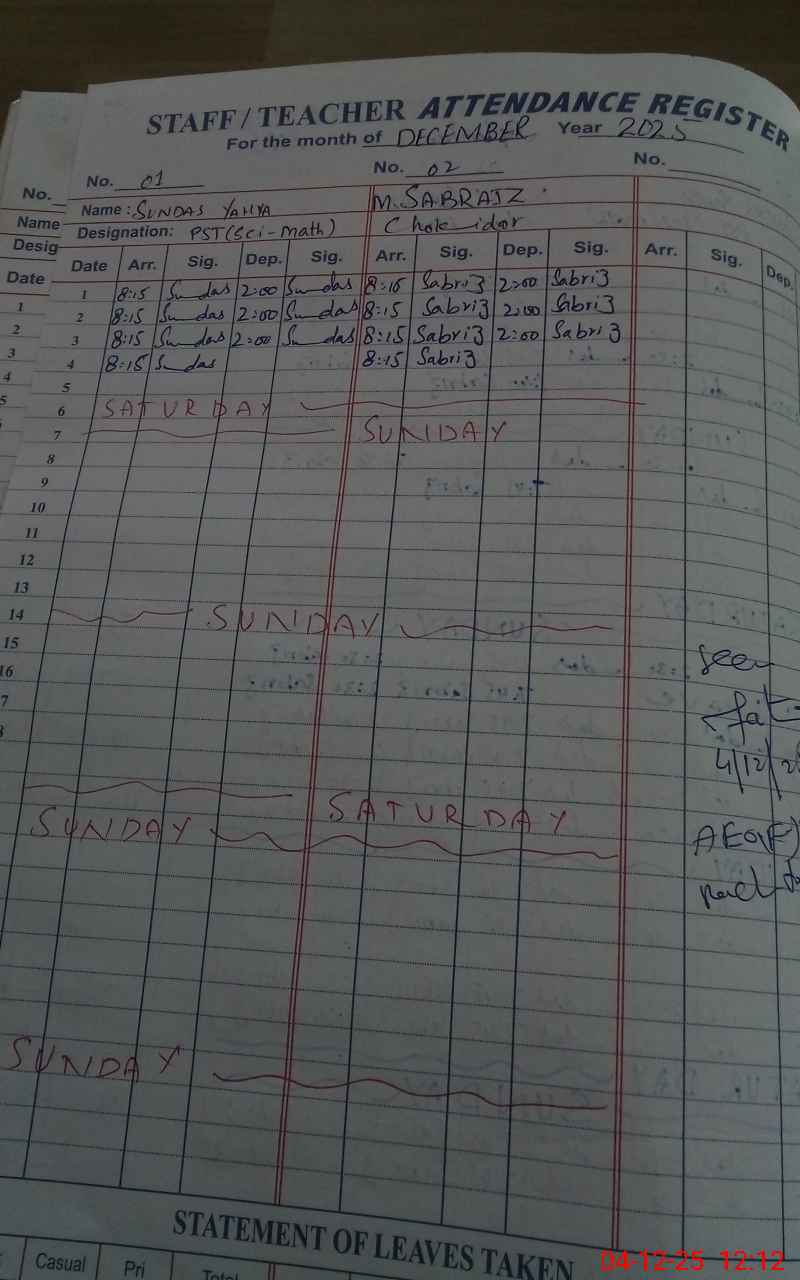 STAFF / TEACHER ATTENDANCE REGISTER
For the month of DECEMBER Year 2025
No. No. 01 No. 02 No.
Name Name : SUNDAS YAHYA M. SABRAIZ
Desig Designation: PST (Sci-Math) Chokidar
Date Date Arr. Sig. Dep. Sig. Arr. Sig. Dep. Sig. Arr. Sig. Dep.
1 1 8:15 Sundas 2:00 Sundas 8:15 Sabri3 2:00 Sabri3
2 2 8:15 Sundas 2:00 Sundas 8:15 Sabri3 2:00 Sabri3
3 3 8:15 Sundas 2:00 Sundas 8:15 Sabri3 2:00 Sabri3
4 4 8:15 Sundas 8:15 Sabri3
5 5
6 SATURDAY
7 SUNDAY
8
9
10
11
12
13
14 SUNDAY
15
16 Seen
7
8 4/12/2
SATURDAY
SUNDAY AEO(F)
SUNDAY
STATEMENT OF LEAVES TAKEN
Casual Pri Total
04-12-25 12:12